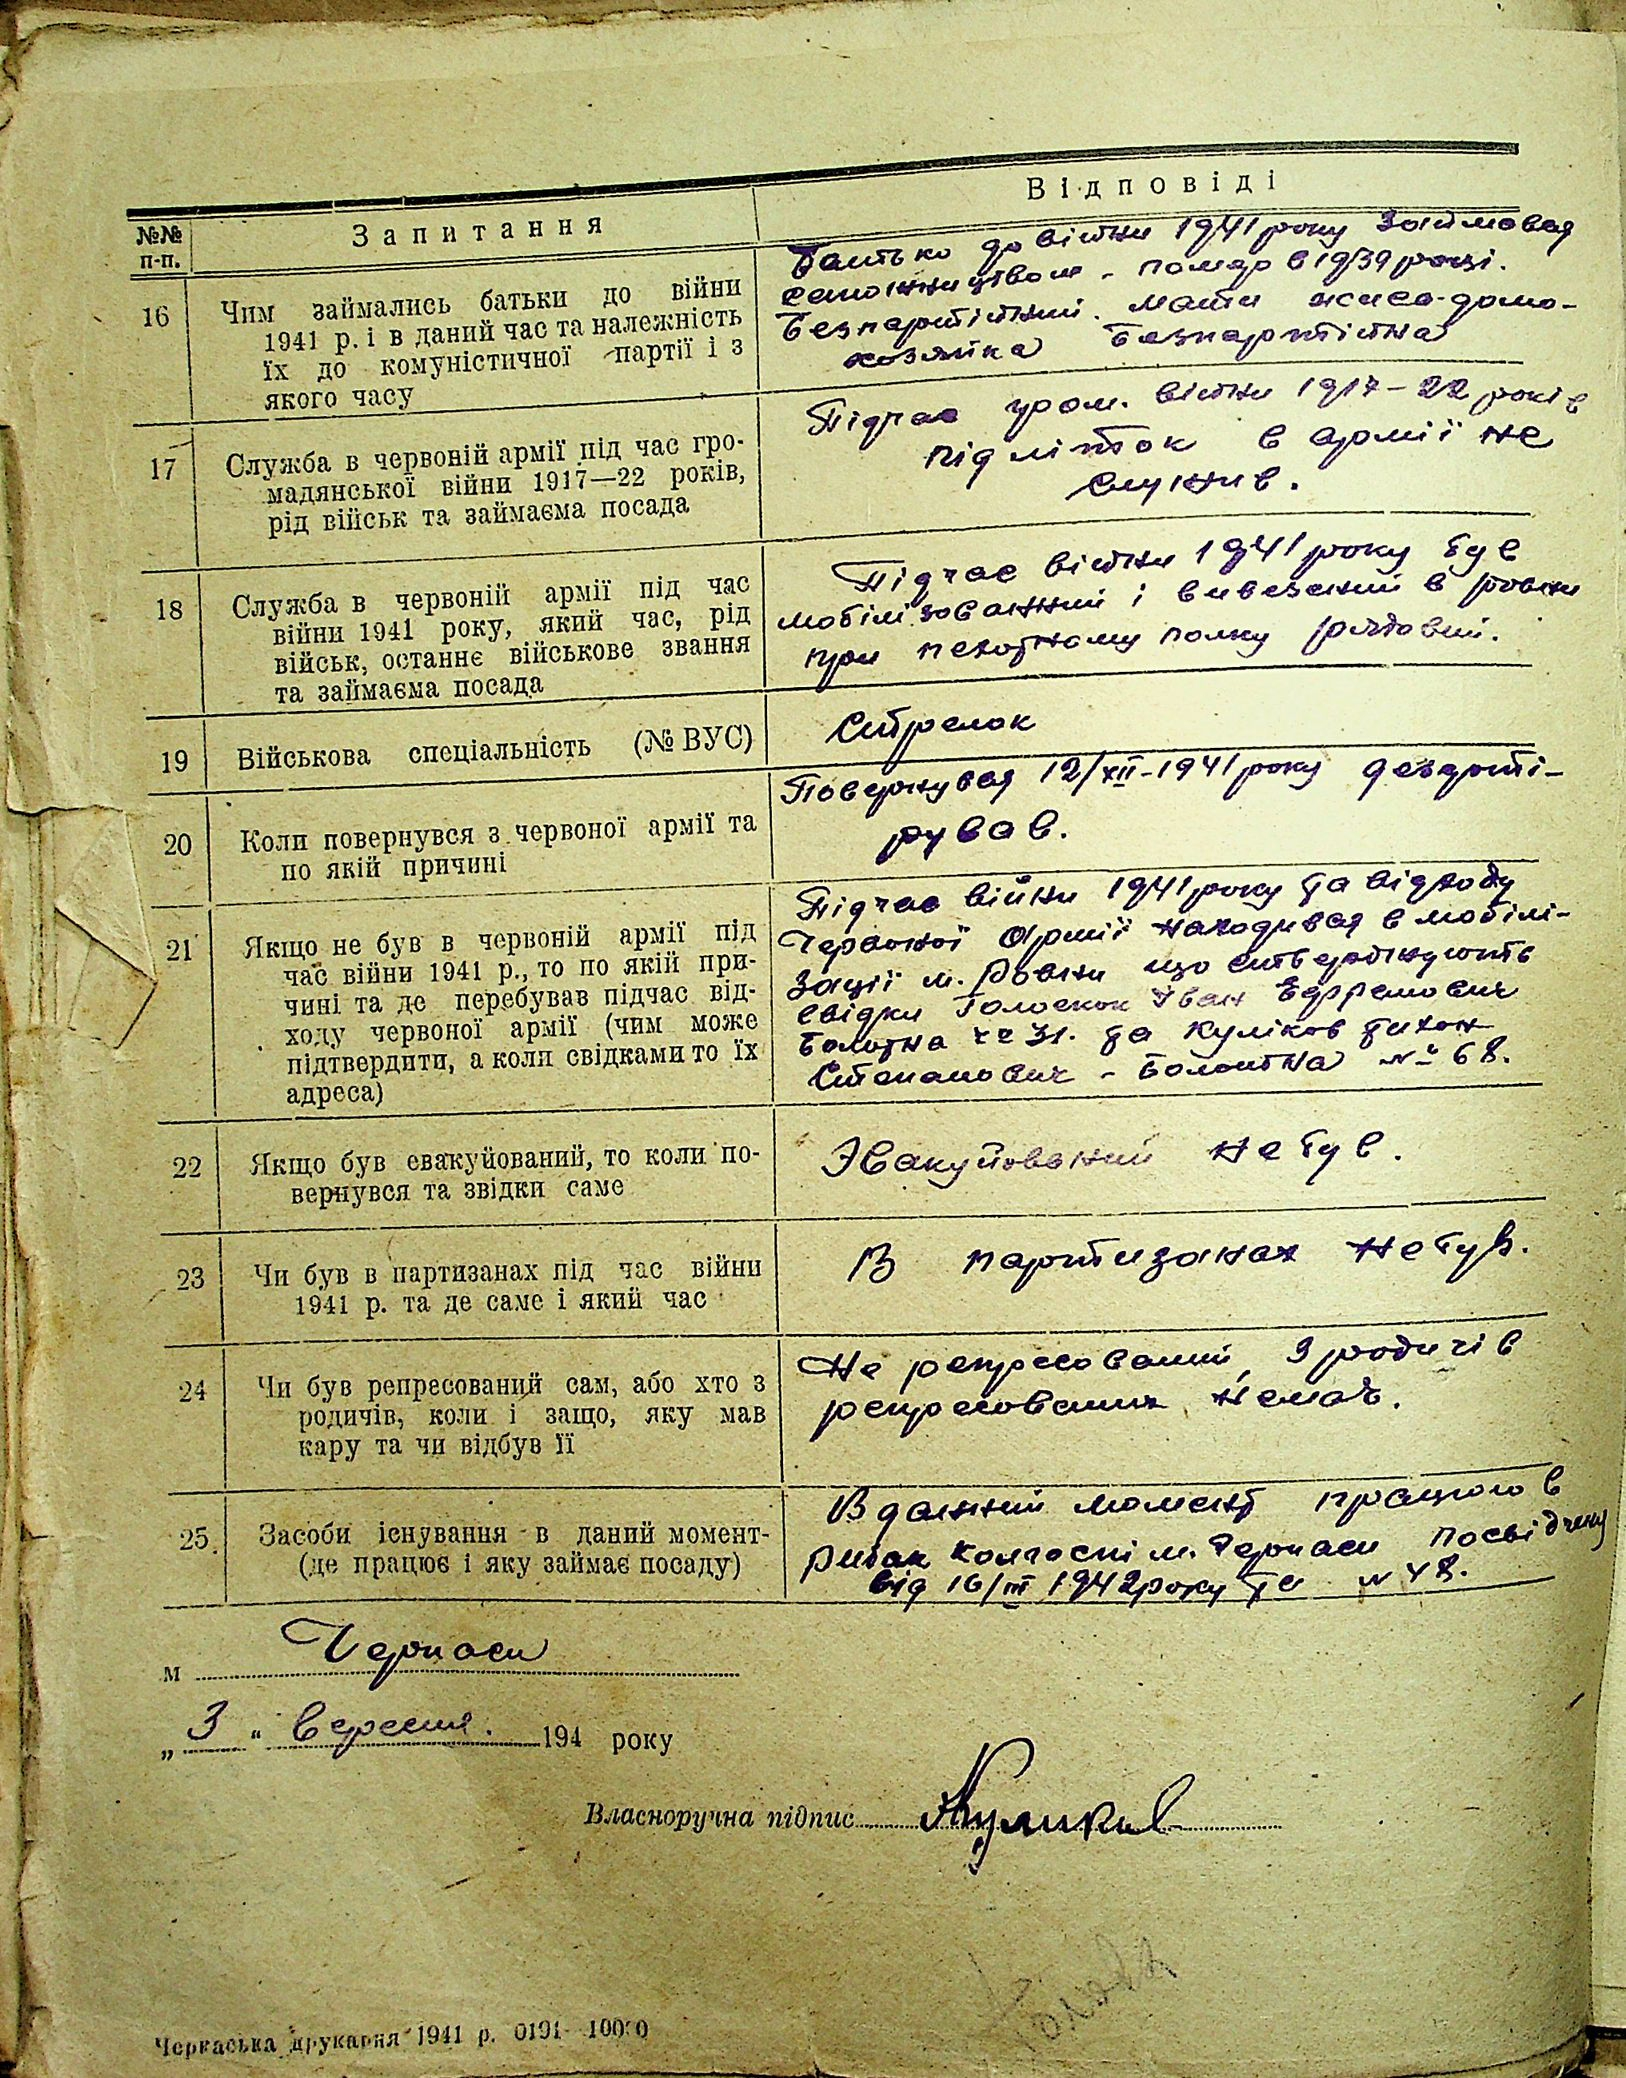 №№ п-п.
Запитання
Відповіді
16
Чим займались батьки до війни
1941 р. і в даний час та належність
їх до комуністичної партії і з
якого часу
Батько до війни 1941 року займався
сапожництвом - помер в 1939 році.
безпартійний. Мати жива-домо-
хозяйка безпартійна
17
Служба в червоній армії під час гро-
мадянської війни 1917—22 років,
рід військ та займаєма посада
Підчас гром. війни 1917-22 років
підліток в армії не
служив.
18
Служба в червоній армії під час
війни 1941 року, який час, рід
військ, останнє військове звання
та займаєма посада
Підчас війни 1941 року був
мобілізований і вивезений в ровни
при пехотному полку рядовий.
19
Військова спеціальність (№ ВУС)
Стрелок
20
Коли повернувся з червоної армії та
по якій причині
Повернувся 12/XII-1941 року дезерті-
рував.
21
Якщо не був в червоній армії під
час війни 1941 р., то по якій при-
чині та де перебував підчас від-
ходу червоної армії (чим може
підтвердити, а коли свідками то їх
адреса)
Підчас війни 1941 року та відходу
Червоної Армії находився в мобілі-
зації м. Ровни що стверджують
свідки Голоскок Іван Ефремович
Болотна № 31. та Куліков Тихон
Степанович - Болотна № 68.
22
Якщо був евакуйований, то коли по-
вернувся та звідки саме
Эвакуйований не був.
23
Чи був в партизанах під час війни
1941 р. та де саме і який час
В партизанах не був.
24
Чи був репресований сам, або хто з
родичів, коли і защо, яку мав
кару та чи відбув її
Не репресований, з родичів
репресованих немає.
25
Засоби існування в даний момент-
(де працює і яку займає посаду)
В данний момент працюю в
рибак колгоспі м. Черкаси посвідчення
від 16/III 1942 року за № 48.
м Черкаси
„ 3 “ вересня. 194 року
Власноручна підпис Куликов
Черкаська друкарня 1941 р. 0191—10000